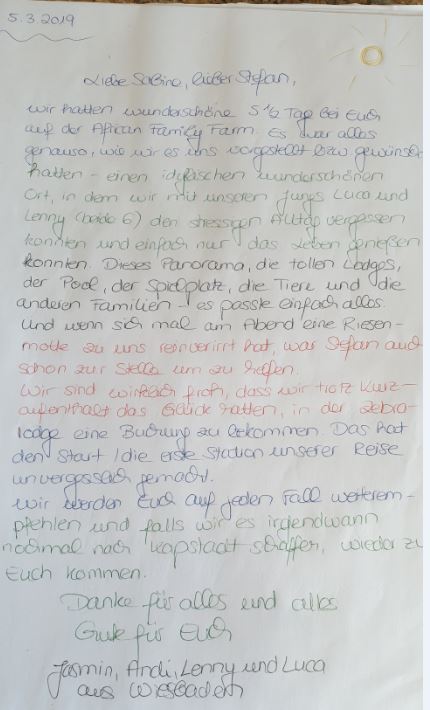 5.3.2019
Liebe Sabine, lieber Stefan,
wir hatten wunderschöne 5 1/2 Tage bei Euch
auf der African Family Farm. Es war alles
genauso, wie wir es uns vorgestellt bzw gewünscht
hatten - einen idyllischen wunderschönen
Ort, in dem wir mit unseren Jungs Luca und
Lenny (beide 6) den stressigen Alltag vergessen
konnten und einfach nur das Leben genießen
konnten. Dieses Panorama, die tollen Lodges,
der Pool, der Spielplatz, die Tiere und die
anderen Familien - es passte einfach alles.
Und wenn sich mal am Abend eine Riesen-
motte zu uns reinverirrt hat, war Stefan auch
schon zur Stelle um zu helfen.
Wir sind wirklich froh, dass wir trotz Kurz-
aufenthalt das Glück hatten, in der Zebra-
lodge eine Buchung zu bekommen. Das hat
den Start / die erste Station unserer Reise
unvergesslich gemacht.
Wir werden Euch auf jeden Fall weiterem-
pfehlen und falls wir es irgendwann
nochmal nach Kapstadt schaffen, wieder zu
Euch kommen.
Danke für alles und alles
Gute für Euch
Jasmin, Andi, Lenny und Luca
aus Wiesbaden